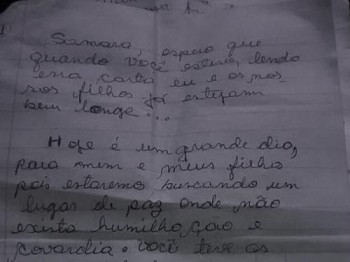 Samara, espero que
quando você estiver lendo
essa carta eu e os nos-
sos filhos já estejam
bem longe...
Hoje é um grande dia,
para mim e meus filho
pois estaremo buscando um
lugar de paz onde não
exista humilhação e
covardia. você teve os